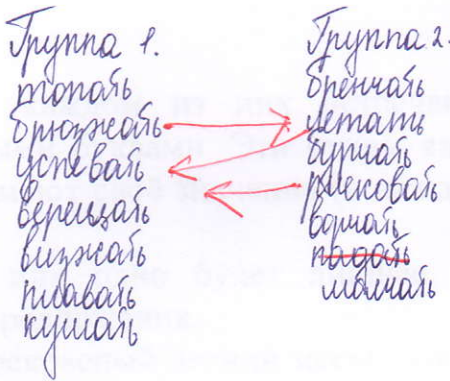 Группа 1.
топать
брюзжать
успевать
верещать
визжать
плавать
кушать
Группа 2.
бренчать
летать
бурчать
рисковать
ворчать
падать
молчать